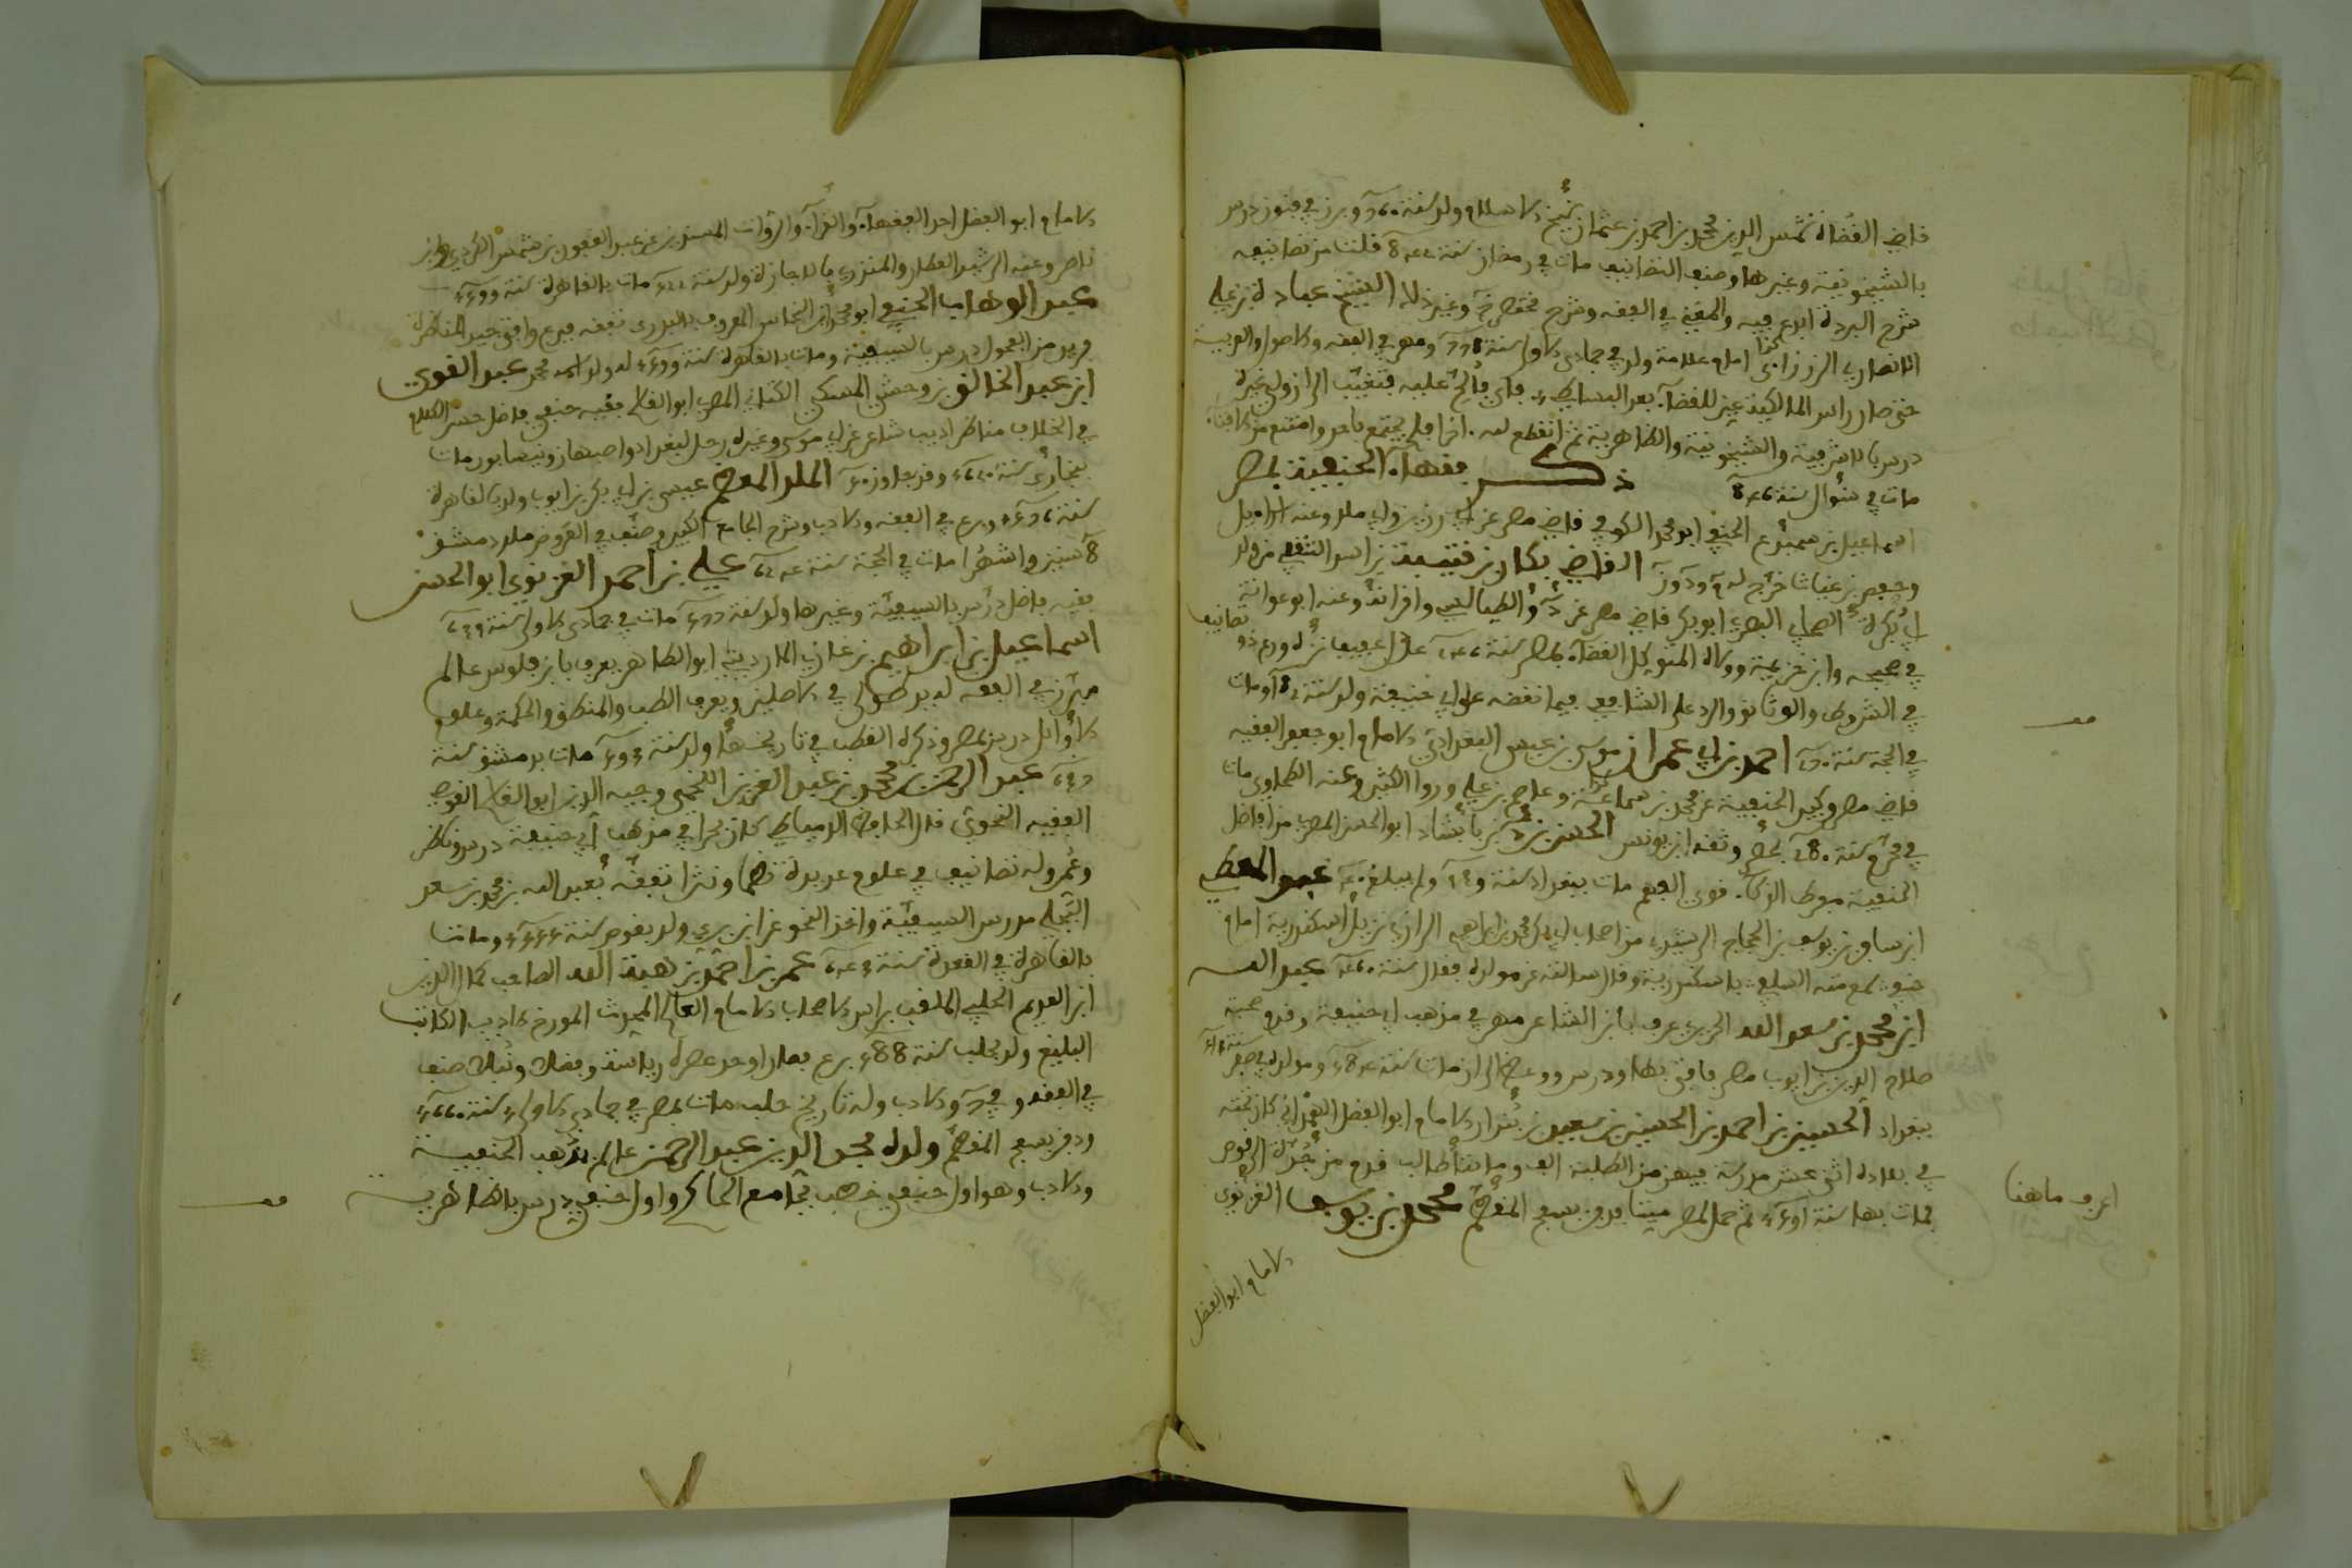 قاضي القضاة شمس الدين محمد بن احمد بن عثمان شيخ الاسلام ولد سنة 760 وبرز في فنون ودرس
بالشيخونية وغيرها وصنف التصانيف مات في رمضان سنة 842 قلت من تصانيفه
شرح البردة والمغني في الفقه وشرح مختصر خ وغير ذلك الشيخ عبادة بن علي
الانصاري الزرزاري كذا امام علامة ولد في جمادى الاولى سنة 778 ومهر في الفقه والاصول والعربية
حتى صار راس المالكية عين للقضاء بعد البساطي فابى فألح عليه فتغيب الى ان ولي غيره
درس بالاشرفية والشيخونية والظاهرية ثم انقطع لله فلم يجتمع باحد وامتنع من الافتاء
مات في شوال سنة 846 ذكر فقهاء الحنفية بمصر
اسماعيل بن سميع الحنفي ابو محمد الكوفي قاضي مصر عن ابي رزين وابي ملك وعنه
وحفص بن غياث خرج له م ود ون القاضي بكار بن قتيبة بن اسد الثقفي من ولد
ابي بكرة الصحابي البصري ابو بكر قاضي مصر عن الطيالسي واقرانه وعنه ابو عوانة
في صحيحه وابن خزيمة وولاه المتوكل القضاء بمصر سنة 246 له ورع ذو تصانيف
في الشروط والوثائق والرد على الشافعي فيما نقضه على ابي حنيفة ولد سنة 182 ومات
في الحجة سنة 270 احمد بن ابي عمران موسى بن عيسى البغدادي الامام ابو جعفر الفقيه
قاضي مصر وكبير الحنفية عن محمد بن سماعة وعاصم بن علي وروا الكثير وعنه الطحاوي مات
في محرم سنة 280 بمصر وثقه ابن يونس الحسن بن بابشاد ابو الحسن المصري من افاضل
الحنفية مفرط الذكاء قوي الفهم مات ببغداد سنة ولم يبلغ عبد المعطي
ابن مسافر بن يوسف بن الحجاج الرشيدي من اصحاب ابي بكر محمد بن ابراهيم الرازي نزيل اسكندرية امام
حنفي سمع منه السلفي باسكندرية وقال سالته عن مولده فقال سنة 460 عبد الله
ابن محمد بن سعد الله الحريري عرف بابن الشاعر مهر في مذهب ابي حنيفة وقدم صحبة
صلاح الدين بن ايوب مصر فافتى بها ودرس ووعظ الى ان مات سنة 584 ومولده في صفر
ببغداد الحسين بن احمد بن الحسين بن سعد بن بندار الامام ابو الفضل الهمذاني كان تحته
في بغداده اثنى عشر مدرسة فيهن من الطلبة الف وما يتا طالب قدم من جدة الى قوص
فمات بها سنة 591 ثم حمل لمصر ميتا فدفن بسفح المقطم محمد بن يوسف الغزنوي
الامام ابو الفضل
اعرف ما هنا
الامام ابو الفضل احد الفقهاء والقراء والرواة المسندين عن عبد الغفور بن شمس الكردي وابن
ناصر وعنه الرشيد العطار والمنذري بالاجازة ولد سنة 522 مات بالقاهرة سنة 599
عبد الوهاب الحنفي ابو محمد ابن النحاس المعروف بالبدري تفقه فبرع وافتى جيد المناظرة
فريد من الفحول درس بالسيفية ومات بالقاهرة سنة 599 له ولد اسمه محمد عبد القوي
ابن عبد الخالق بن وحشي المسكي الكناني المصري ابو القاسم فقيه حنفي فاضل حسن الكلام
في الخلاف مناظر اديب شاعر عن ابي موسى وغيره رحل لبغداد واصبهان ونيسابور مات
ببخارى سنة وقد جاوز الملك المعظم عيسى بن ابي بكر بن ايوب ولد بالقاهرة
سنة 576 وبرع في الفقه والادب وشرح الجامع الكبير وصنف في العروض ملك دمشق
8 سنين واشهرا مات في الحجة سنة 624 علي بن احمد الغزنوي ابو الحسن
فقيه فاضل درس بالسيفية وغيرها ولد سنة مات في جمادى الاولى سنة
اسماعيل بن ابراهيم بن غازي الماردينى ابو الطاهر يعرف بابن فلوس عالم
مبرز في الفقه له يد طولى في الاصلين ويعرف الطب والمنطق والحكمة وعلوم
الاوائل درس بمصر وذكره القطب في تاريخها ولد سنة 593 مات بدمشق سنة
637 عبد الرحمن بن محمد بن عبد العزيز اللخمي وجيه الدين ابو القاسم القوصي
الفقيه النحوي قال الحافظ الدمياطي كان بحرا في مذهب ابي حنيفة درس وناظر
وعمر وله تصانيف في علوم عديدة نظما ونثرا تفقه بعبد الله بن محمد بن سعد
البجلي مدرس السيفية واخذ النحو عن ابن بري ولد بقوص سنة 555 ومات
بالقاهرة في القعدة سنة 643 عمر بن احمد بن هبة الله الصاحب كمال الدين
ابن العديم الحلبي الملقب براس الاصحاب الامام العالم المحدث المورخ الاديب الكاتب
البليغ ولد بحلب سنة 588 برع بصار اوحد عصره رياسة وفضلا ونبلا صنف
في الفقه وفي والادب وله تاريخ حلب مات بمصر في جمادى الاولى سنة 660
ودفن بسفح المقطم ولده مجد الدين عبد الرحمن عالم بمذهب الحنفية
والادب وهو اول حنفي خطب بجامع الحاكم واول حنفي درس بالظاهرية